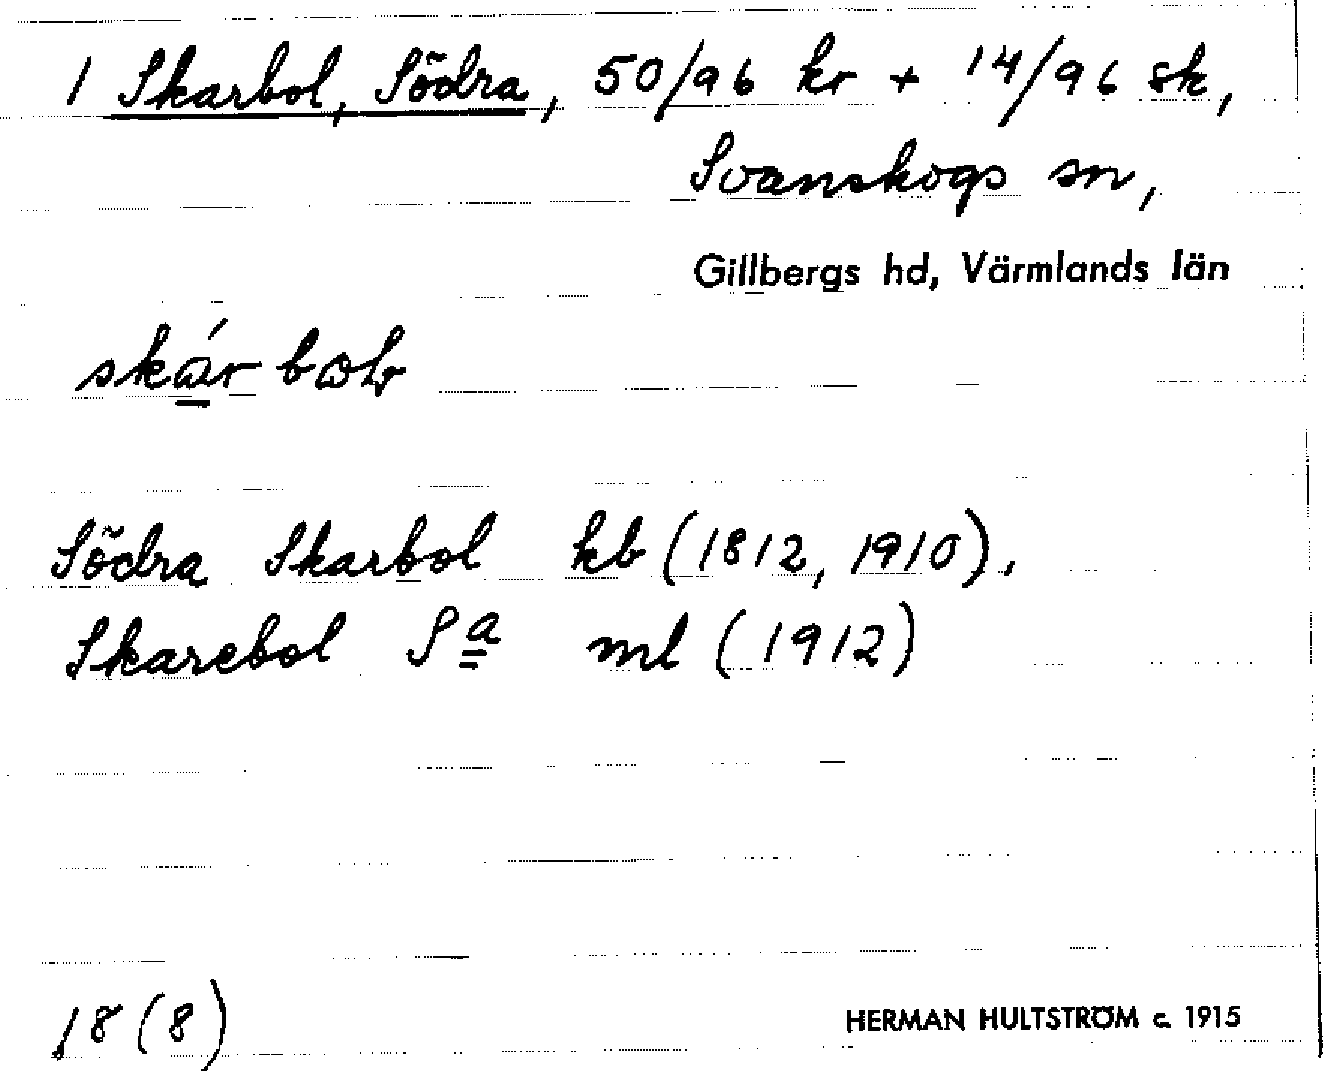 1 Skarbol, Södra, 50/96 kr + 14/96 sk,
Svanskogs sn,
Gillbergs hd, Värmlands län
Södra Skarbol kb (1812, 1910),
Skarebol Sa ml (1912)
18 (8)
HERMAN HULTSTRÖM c. 1915